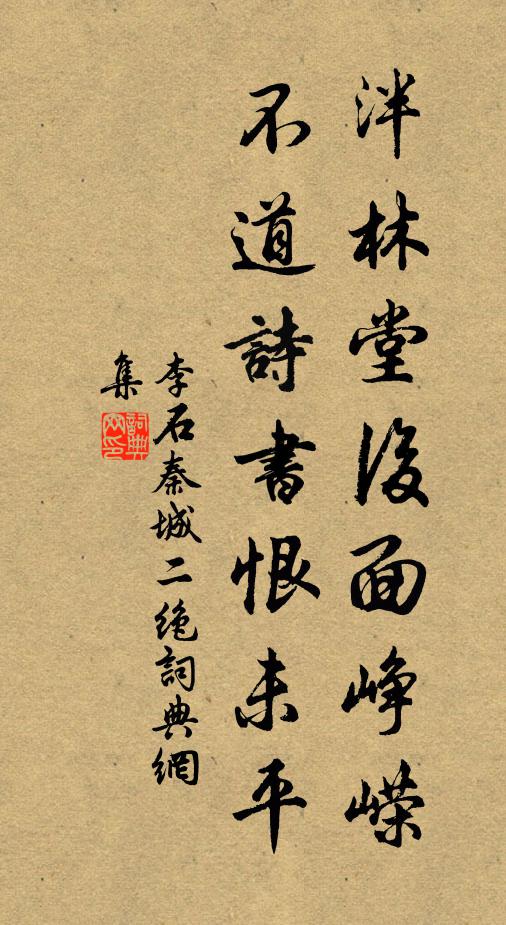 泮林堂後面崢嶸
不道詩書恨未平
李石秦城二絶詞典網
集
詞典網印